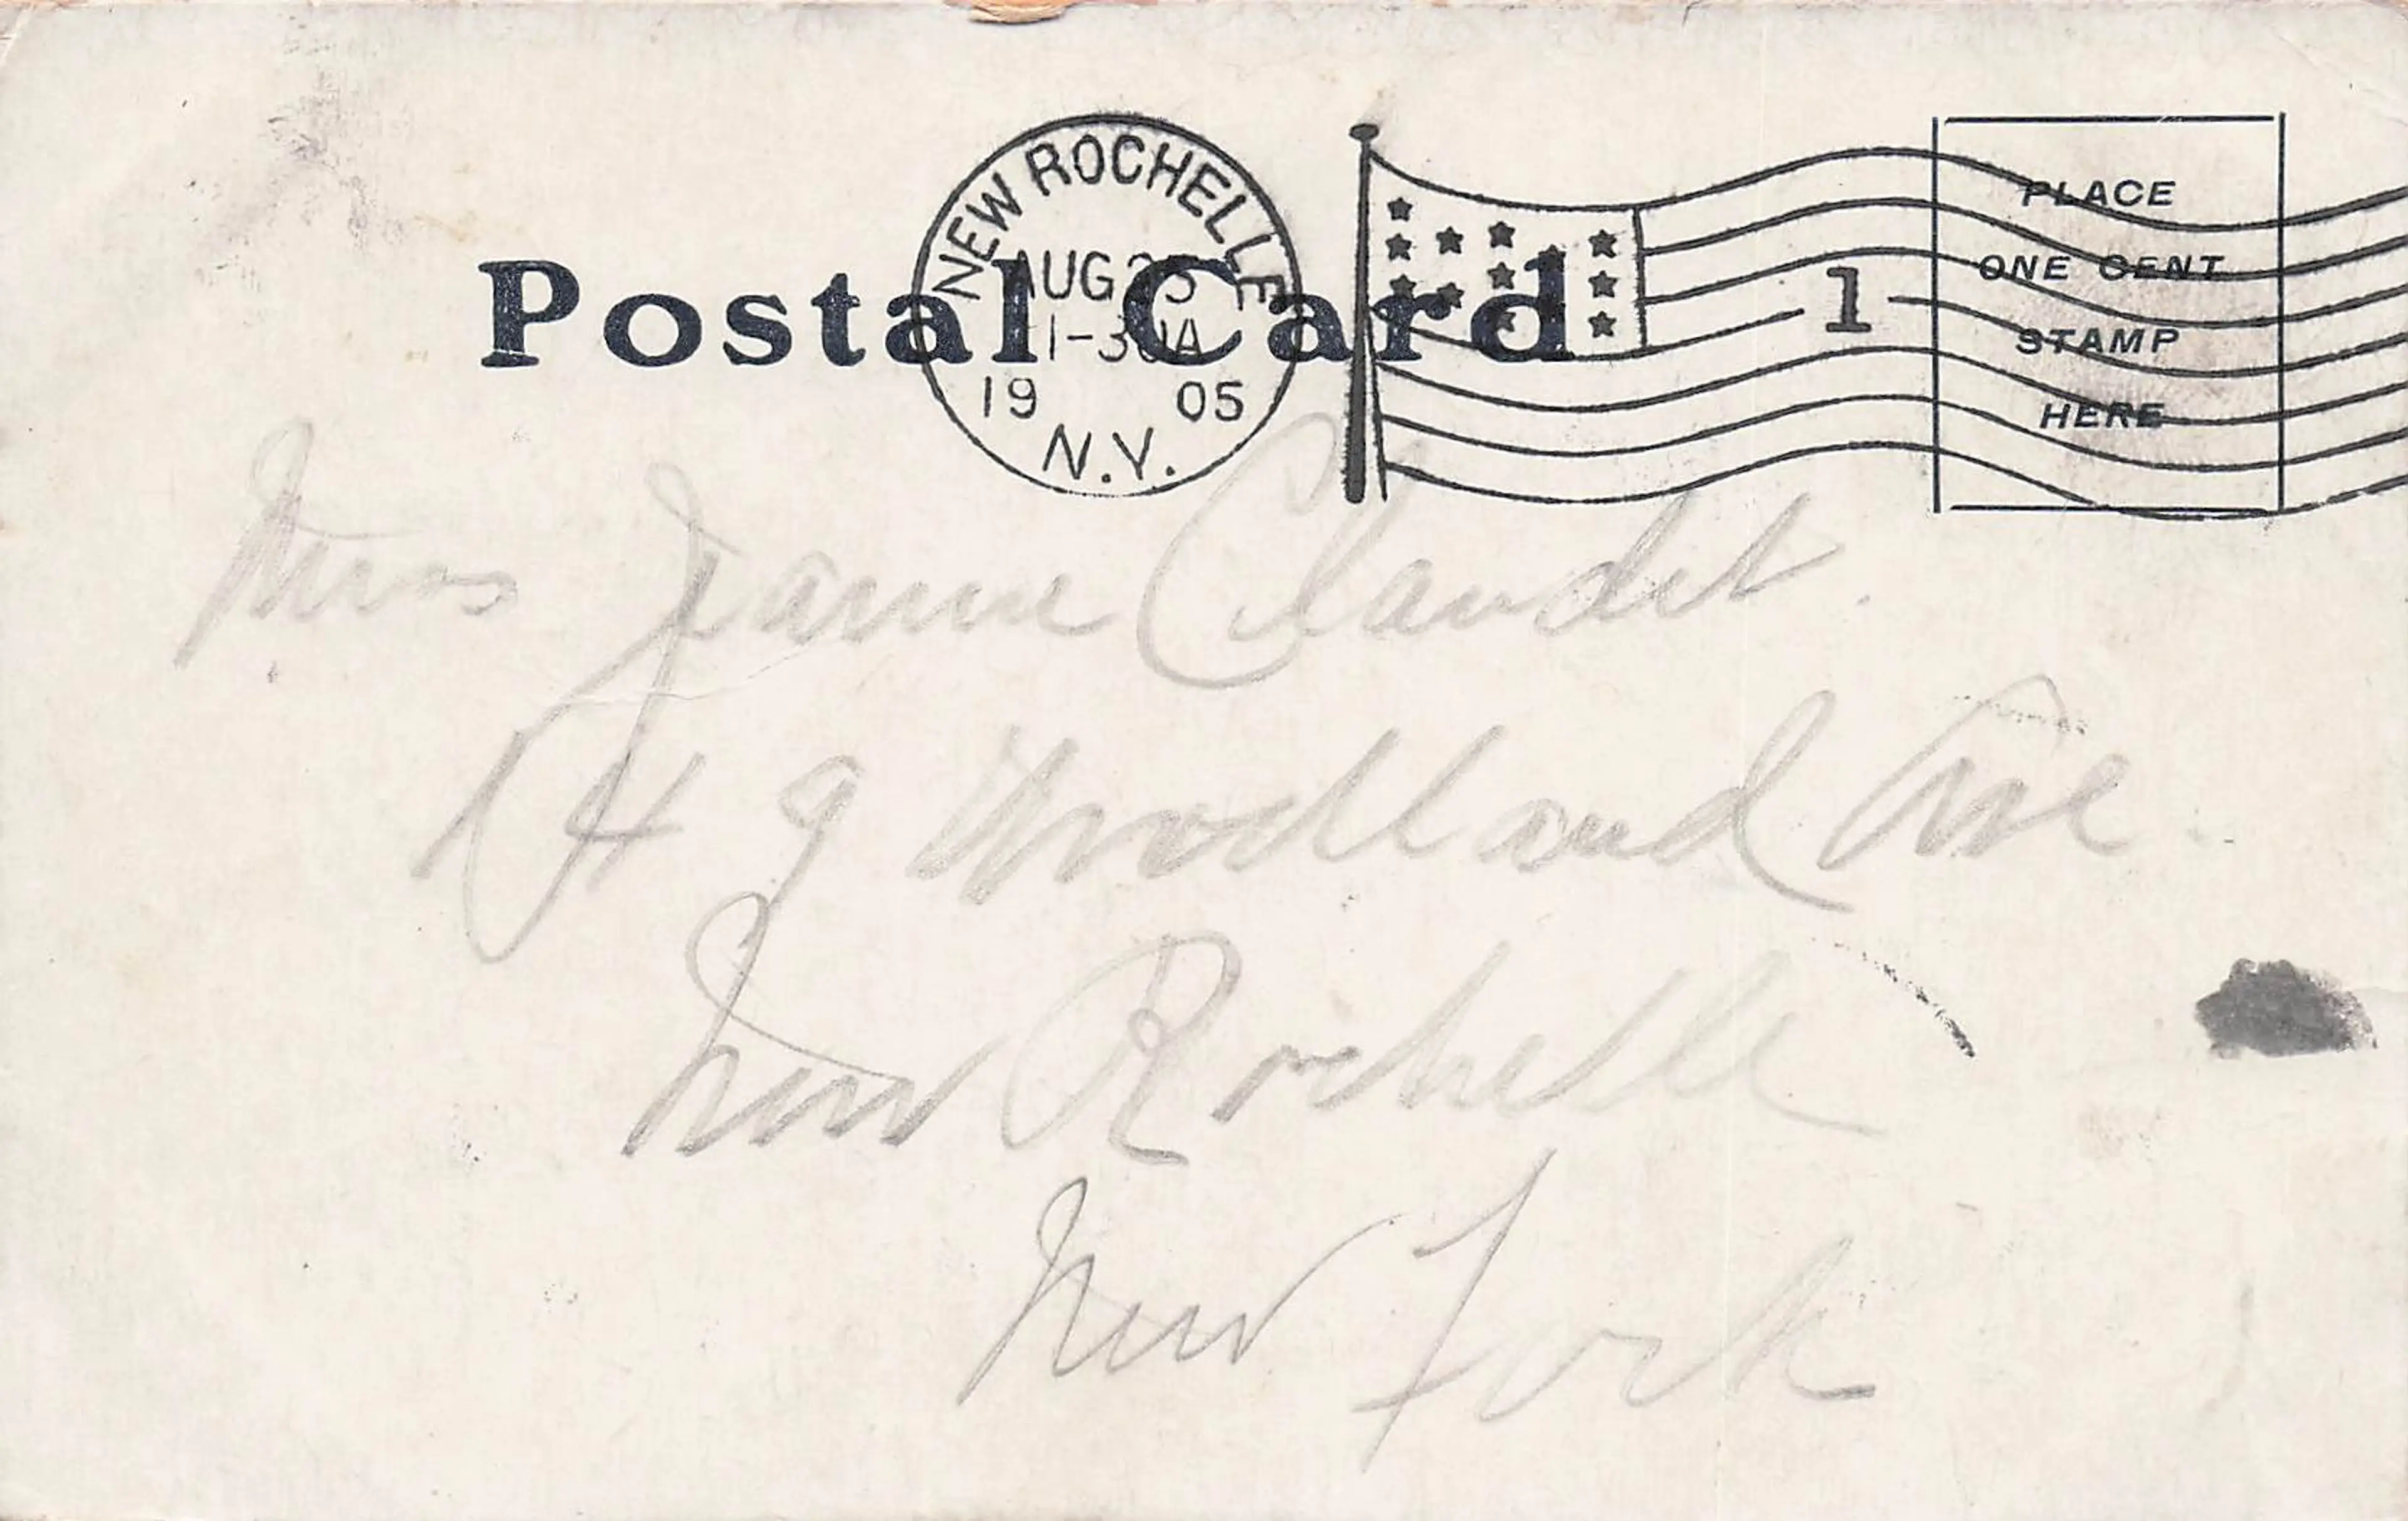 NEW ROCHELLE
AUG 23
1-30A
19 05
N.Y.
1
Postal Card
PLACE
ONE CENT
STAMP
HERE
Miss Jeanne Claudet.
49 Woodland Ave.
New Rochelle
New York